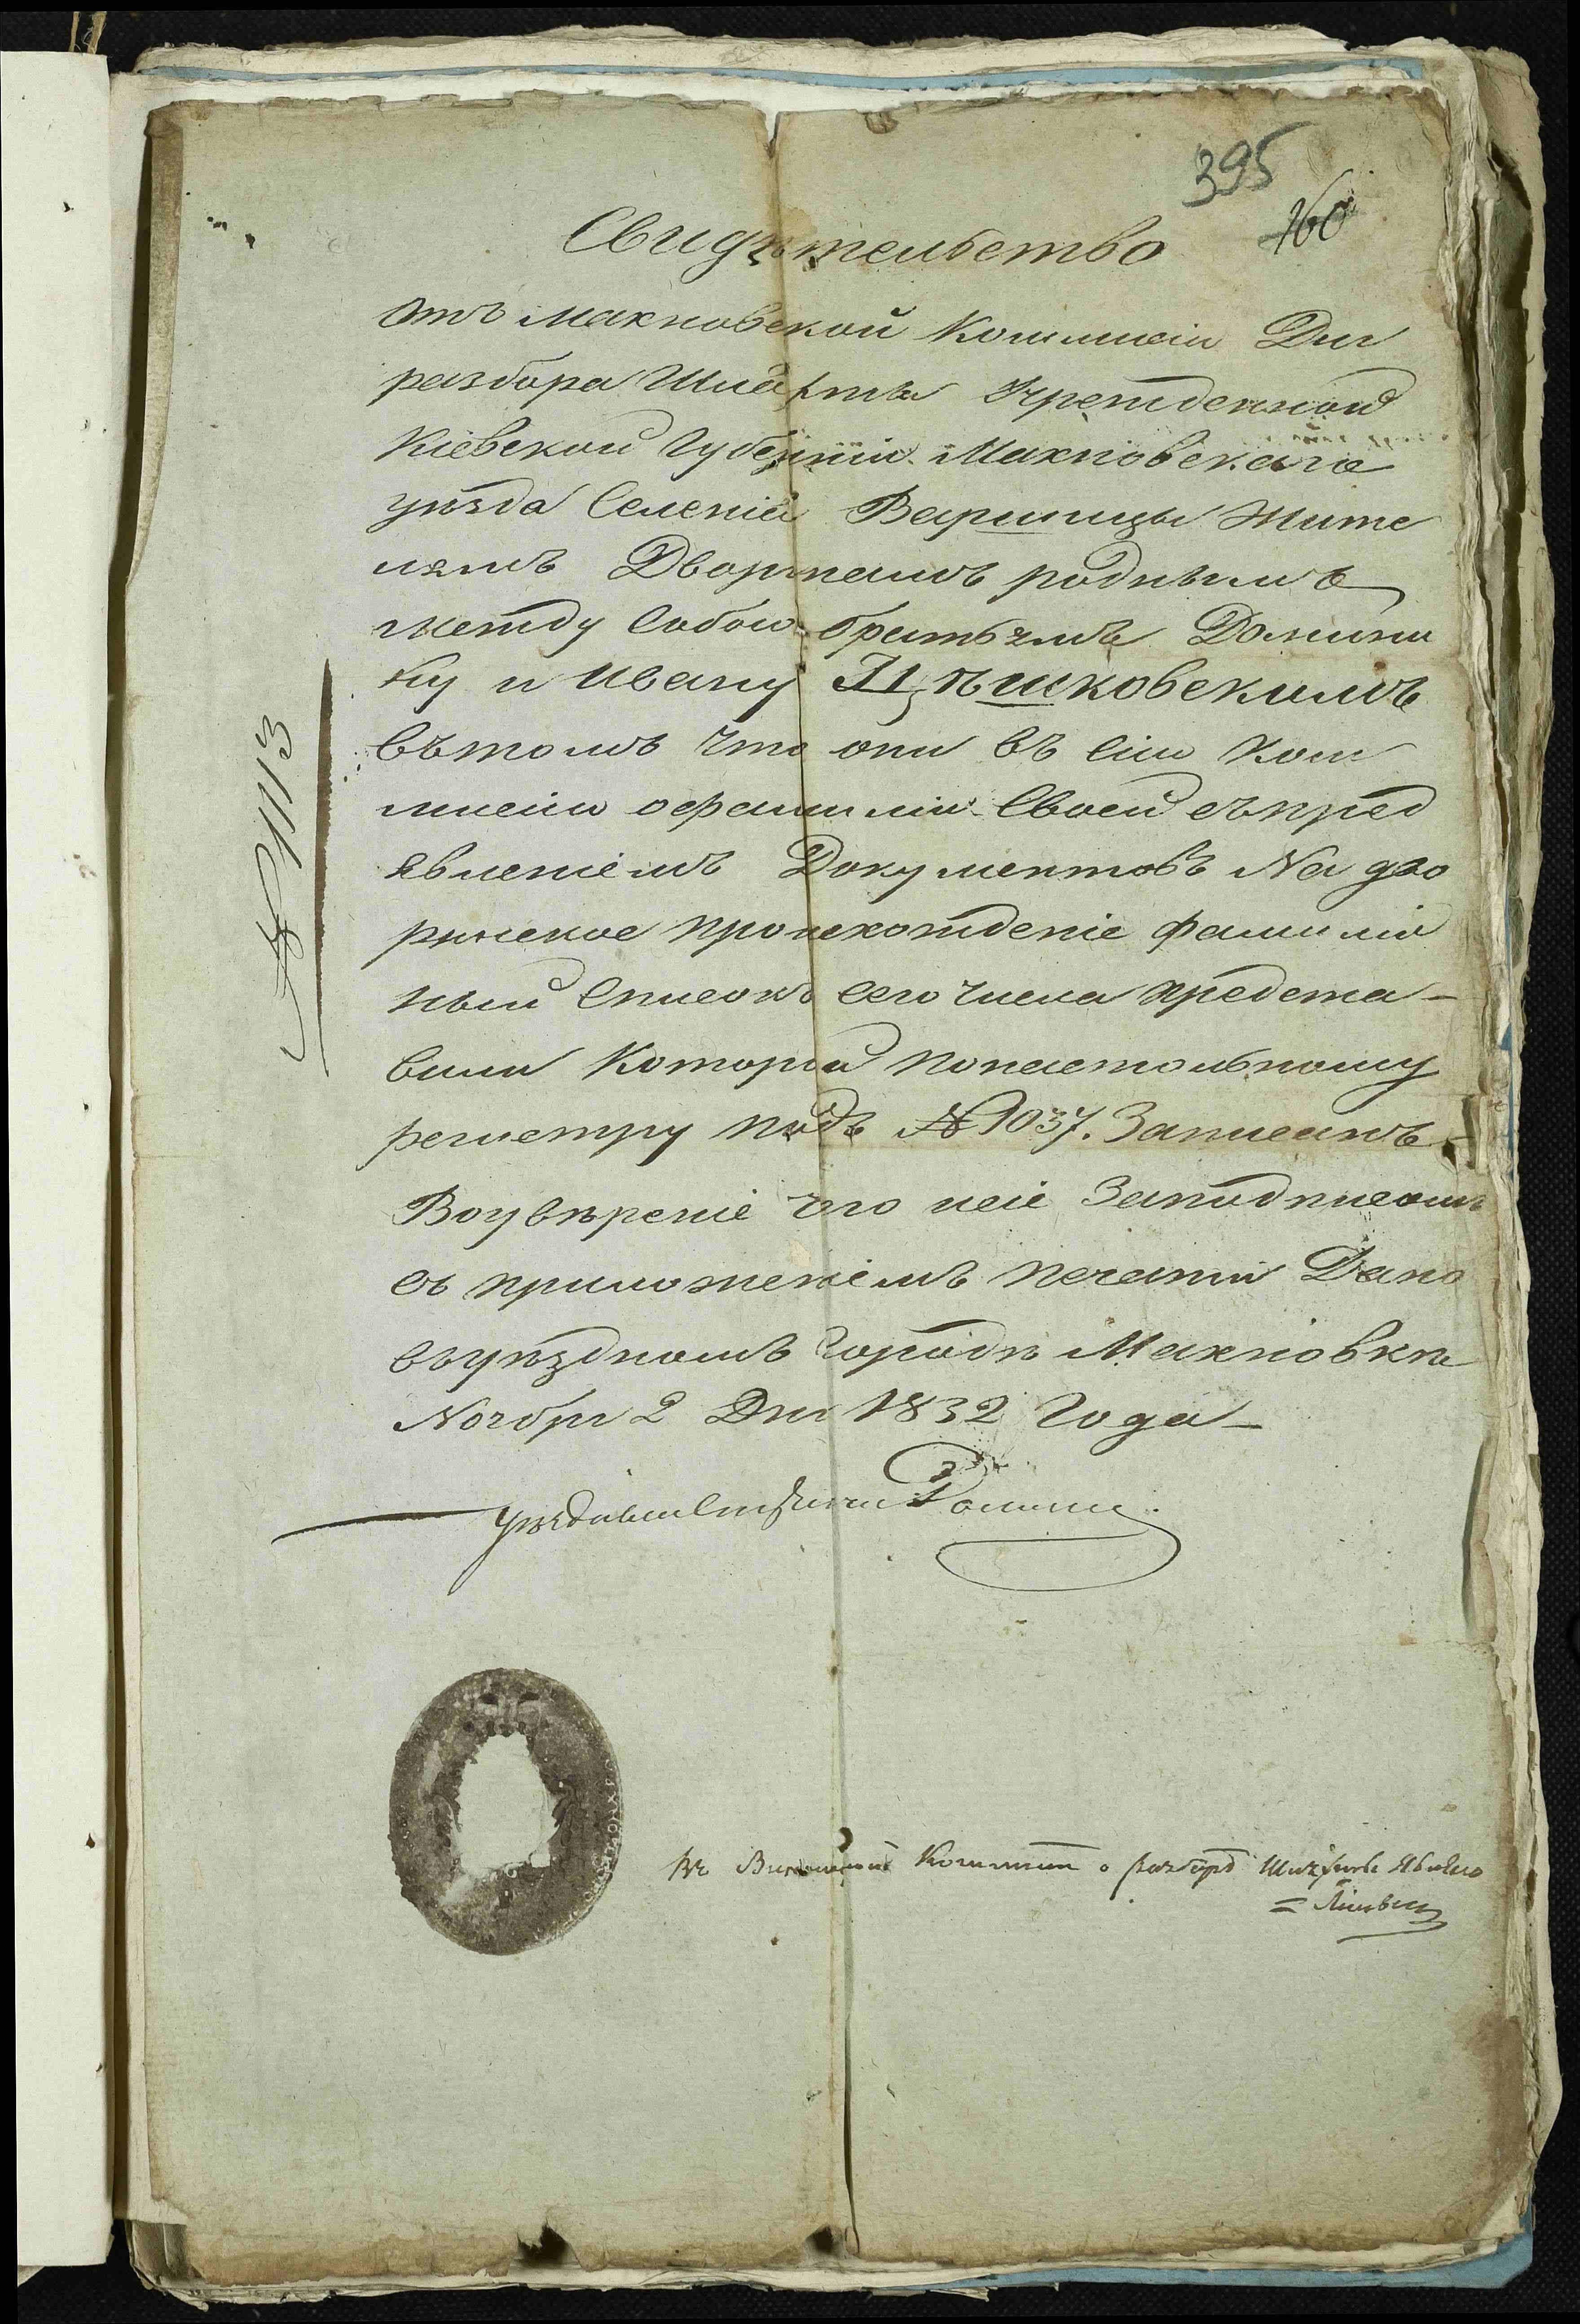 395
160
Свидѣтельство
отъ Махновской Коммисіи Для
разбора Шляхты Учрежденной
Кіевской Губерніи Махновскаго
уѣзда Селеніи Вершицы Жите
лямъ Дворянамъ роднымъ
между Собою братьямъ Домини
ку и Ивану Цѣшковскимъ
въ томъ что они въ сію Ком
мисію о фамиліи Своей съ пред
явленіемъ Документовъ На дво
рянское происхожденіе фамилiо
ный Списокъ сего числа предста-
вили Которой по настольному
регистру подъ № 1037. Записанъ -
Во увѣреніе чего сіе За подписомъ
съ приложеніемъ печати Дано
въ уѣздномъ городѣ Махновкѣ
Ноября 2 Дня 1832 Года
№ 1113
Въ Коммисіи о разборѣ Шляхты Явлено